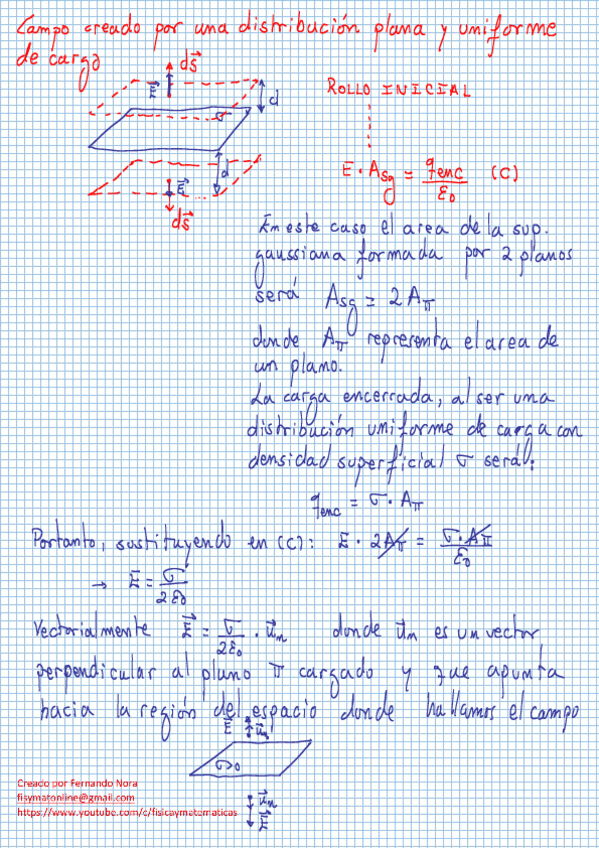 Campo creado por una distribución plana y uniforme
de carga
dS⃗
E⃗
σ
d
ROLLO INICIAL
E · A_sg = q_enc/ε₀ (C)
d
E⃗
dS⃗
En este caso el area de la sup.
gaussiana formada por 2 planos
será A_sg = 2A_π
donde A_π representa el area de
un plano.
La carga encerrada, al ser una
distribución uniforme de carga con
densidad superficial σ será:
q_enc = σ · A_π
Por tanto, sustituyendo en (C): E · 2A_π = σ · A_π/ε₀
→ E = σ/2ε₀
Vectorialmente E⃗ = σ/2ε₀ · u⃗_n donde u⃗_n es un vector
perpendicular al plano π cargado y que apunta
hacia la región del espacio donde hallamos el campo
E⃗ u⃗_n
σ>0
u⃗_n
E⃗
Creado por Fernando Nora
fisymatonline@gmail.com
https://www.youtube.com/c/fisicaymatematicas